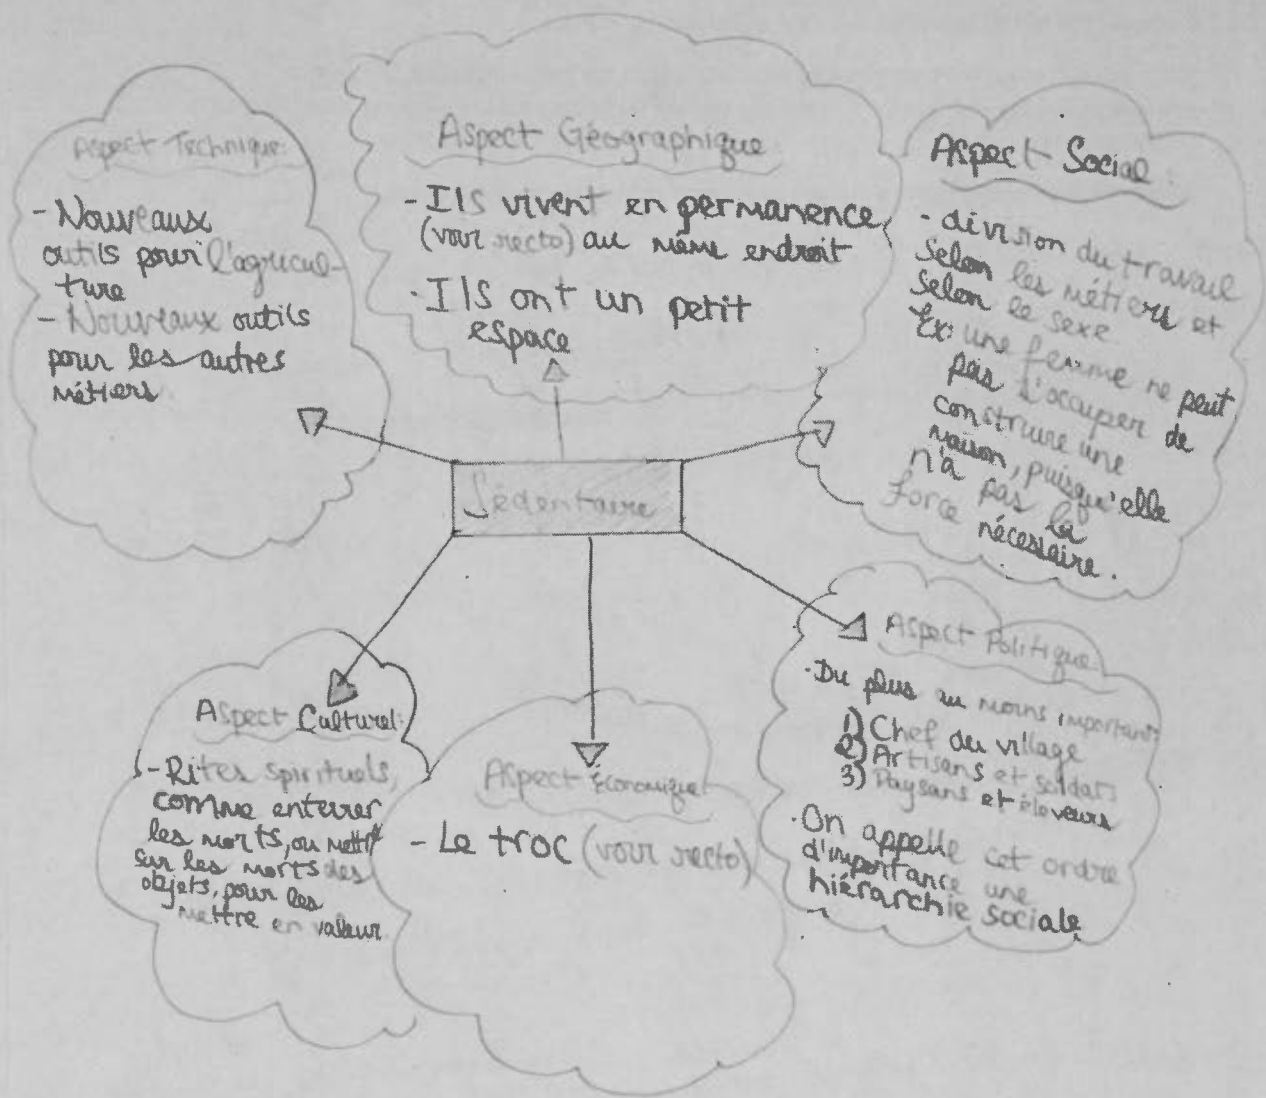 Aspect Technique:
- Nouveaux
outils pour l'agricul-
ture
- Nouveaux outils
pour les autres
métiers
Aspect Géographique
- Ils vivent en permanence
(voir recto) au même endroit
- Ils ont un petit
espace
Aspect Social:
- division du travail
selon les métiers et
selon le sexe
Ex: une femme ne peut
pas s'occuper de
construire une
maison, puisqu'elle
n'a pas la
force nécessaire.
Sédentaire
Aspect Culturel:
- Rites spirituels,
comme enterrer
les morts, ou mettre
sur les morts des
objets, pour les
mettre en valeur
Aspect Économique:
- Le troc (voir recto)
Aspect Politique:
- Du plus au moins important:
1) Chef du village
2) Artisans et soldats
3) Paysans et éleveurs
- On appelle cet ordre
d'importance une
hiérarchie sociale